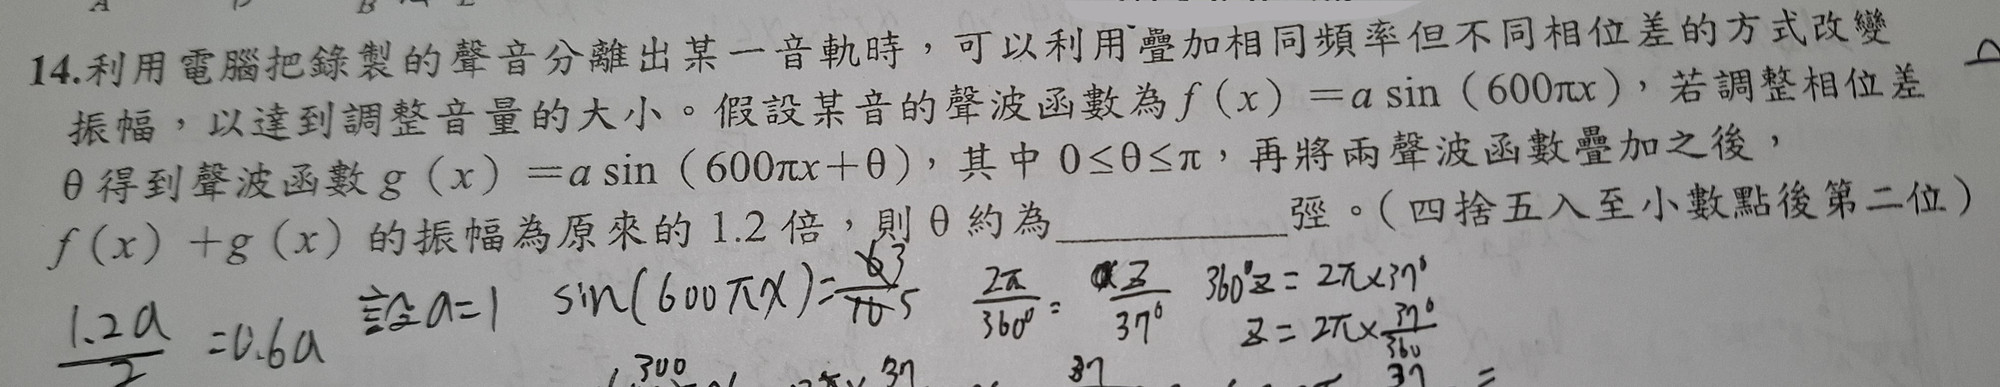 14.利用電腦把錄製的聲音分離出某一音軌時，可以利用疊加相同頻率但不同相位差的方式改變
振幅，以達到調整音量的大小。假設某音的聲波函數為f（x）＝a sin（600πx），若調整相位差
θ得到聲波函數g（x）＝a sin（600πx＋θ），其中 0≤θ≤π，再將兩聲波函數疊加之後，
f（x）＋g（x）的振幅為原來的 1.2 倍，則 θ 約為＿＿＿＿＿＿弳。（四捨五入至小數點後第二位）
1.2a/2 =0.6a 設a=1 sin(600πx)= 3/5 2π/360° = z/37° 360°z = 2π×37°
z = 2π×37°/360